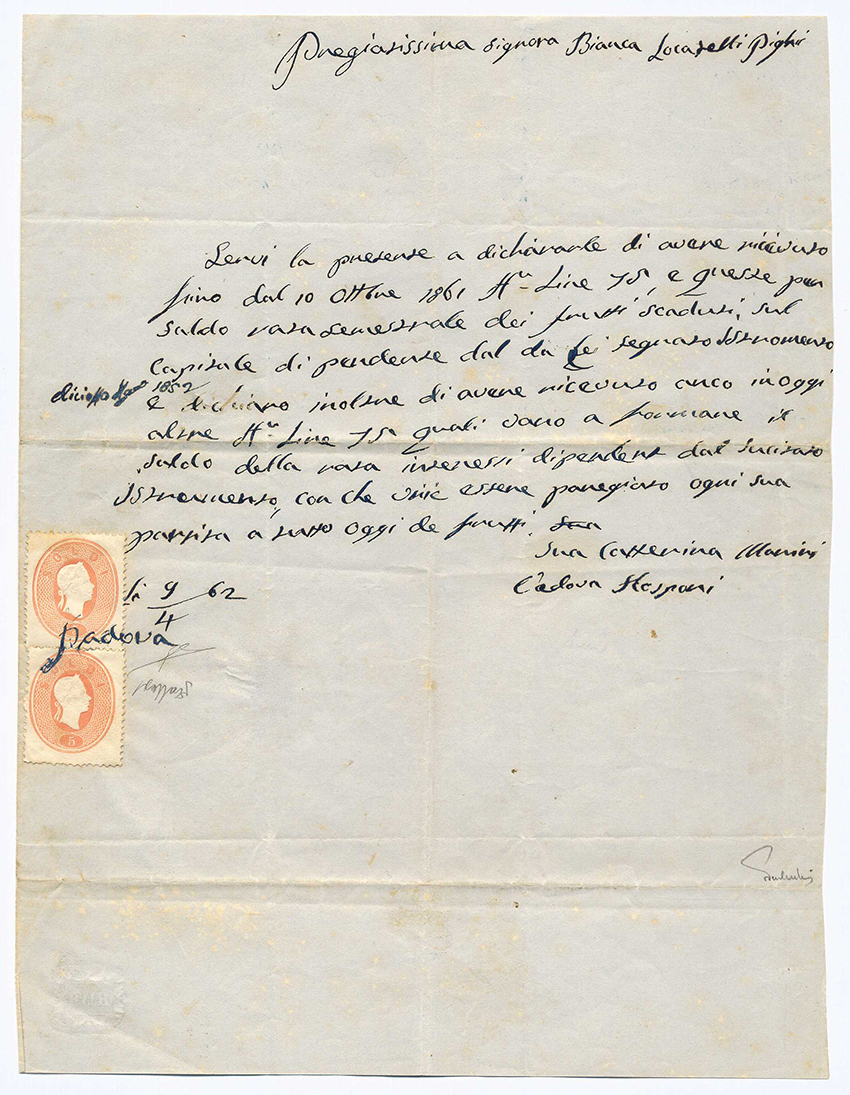 Pregiatissima Signora Bianca Locatelli Pighi
Servi la presente a dichiararle di avere ricevuto
fino dal 10 Ottbre 1861 Ae Lire 75, e queste per
saldo rata semestrale dei frutti scaduti, sul
Capitale dipendente dal da Lei segnato Istromento
diciotto 1852
e dichiaro inoltre di avere ricevuto anco in oggi
altre Ae Lire 75 quali vano a formare il
saldo della rata interessi dipendent dal sucitato
Istromento, con che essere paregiato ogni sua
partita a tutto oggi de frutti. Sua
Sua Catterina Manini
Vedova
li 9/4 62
Padova
SOLDI
SOLDI
5